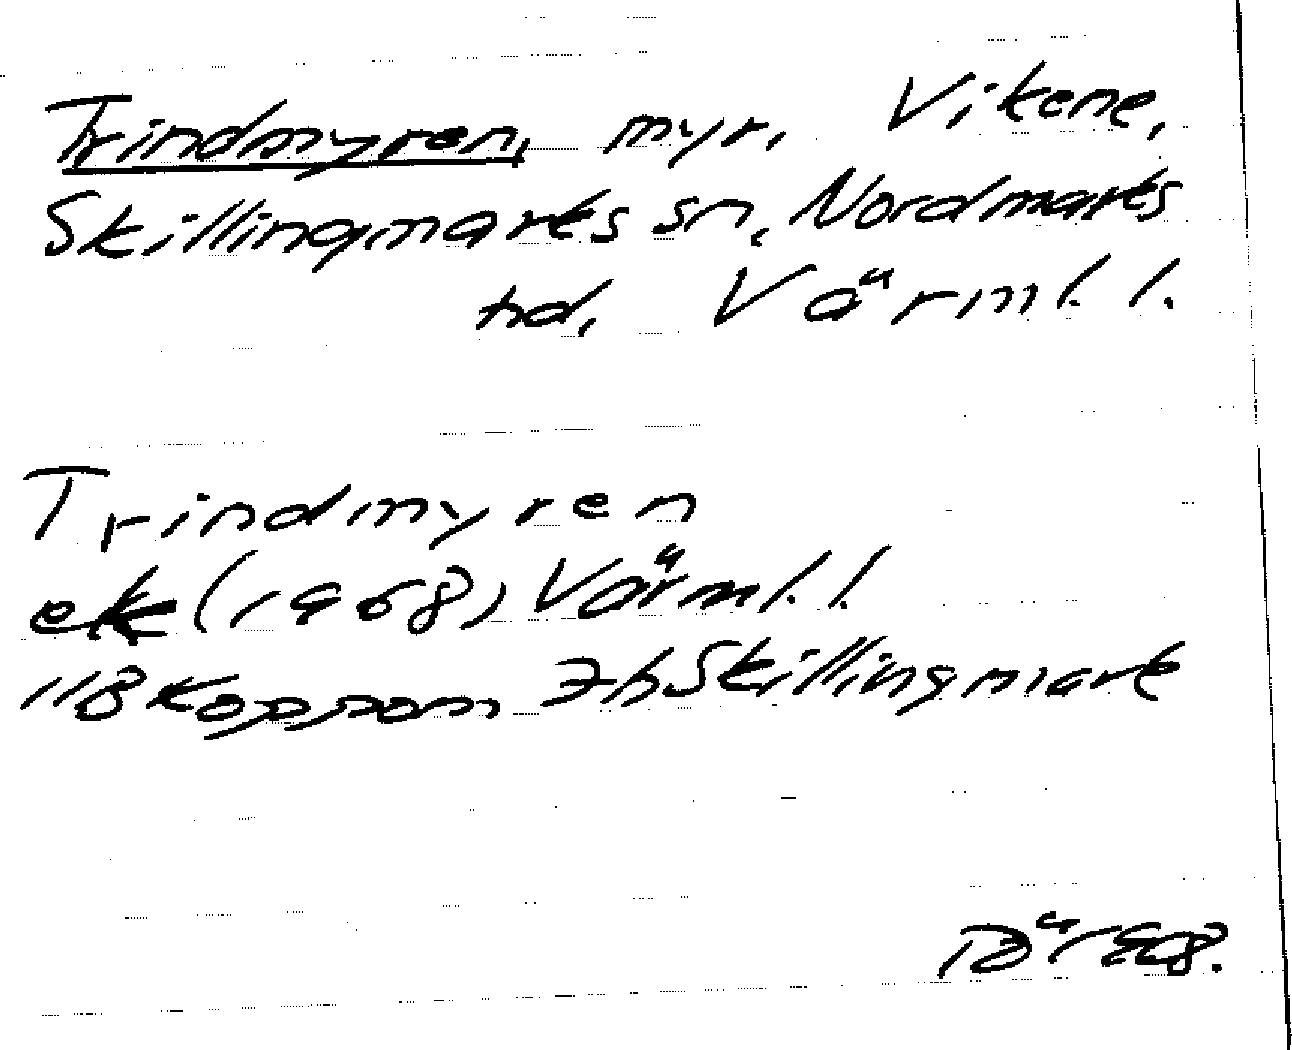 Trindmyren, myr, Vikene,
Skillingmarks sn, Nordmarks
hd, Värml. l.
Trindmyren
ek (1968) Värml. l.
11B Koppom 7h Skillingmark